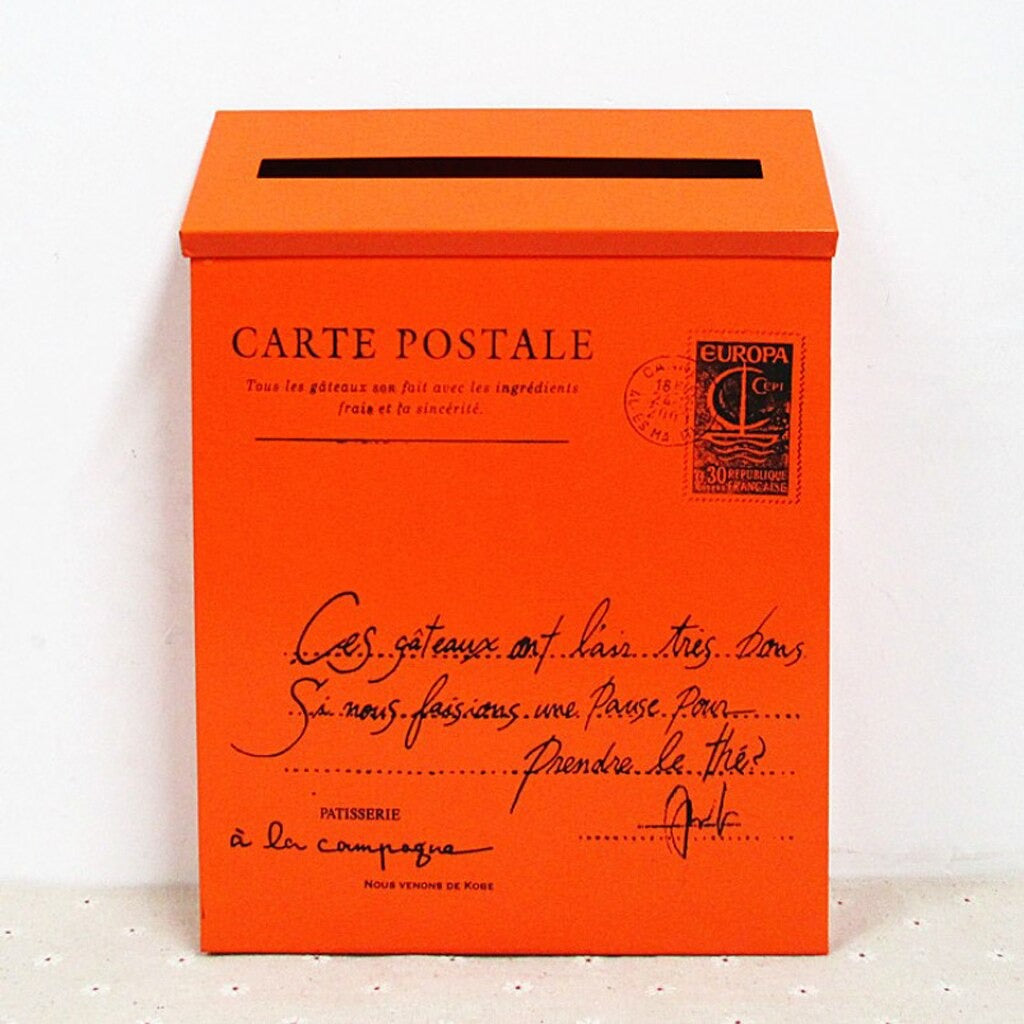 CARTE POSTALE
Tous les gâteaux son fait avec les ingrédients
frais et la sincérité.
EUROPA
CEPT
0,30 REPUBLIQUE
FRANCAISE
Ces gâteaux ont l'air très bons
Si nous faisions une Pause Pour
Prendre le thé?
PATISSERIE
à la campagne
NOUS VENONS DE KOBE